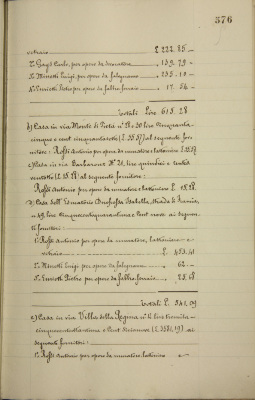 376
vetraio L. 222.85
2. Gay Carlo, per opere da decoratore 139.75
3. Minotti Luigi, per opere da falegname 235.10
4. Pietro per opere da fabbro ferraio 17.56
Totale Lire 615.28
b) Casa in via Monte di Pietà n° 28 e 30 lire cinquanta
cinque e cent. cinquantasette (L. 55.57) al seguente for-
nitore: Rossi Antonio per opere da muratore e lattoniere L. 55.57
c) Casa in via Barbaroux N° 21, lire quindici e cent.
ventotto (L. 15.28) al seguente fornitore:
Rossi Antonio per opere da muratore e lattoniere L. 15.28
d) Casa dell'Educatorio Duchessa Isabella, strada di Francia,
n. 49, lire cinquecentoquarantuno e cent. nove ai seguen-
ti fornitori:
1. Rossi Antonio per opere da muratore, lattoniere e
vetraio L. 403.41
2. Minotti Luigi per opere da falegname 62.
3. Pietro per opere da fabbro ferraio 75.68
Totale L. 541.09
e) Casa in via Villa della Regina n° lire tremila-
ai
seguenti fornitori:
1. Rossi Antonio per opere da muratore, lattoniere e